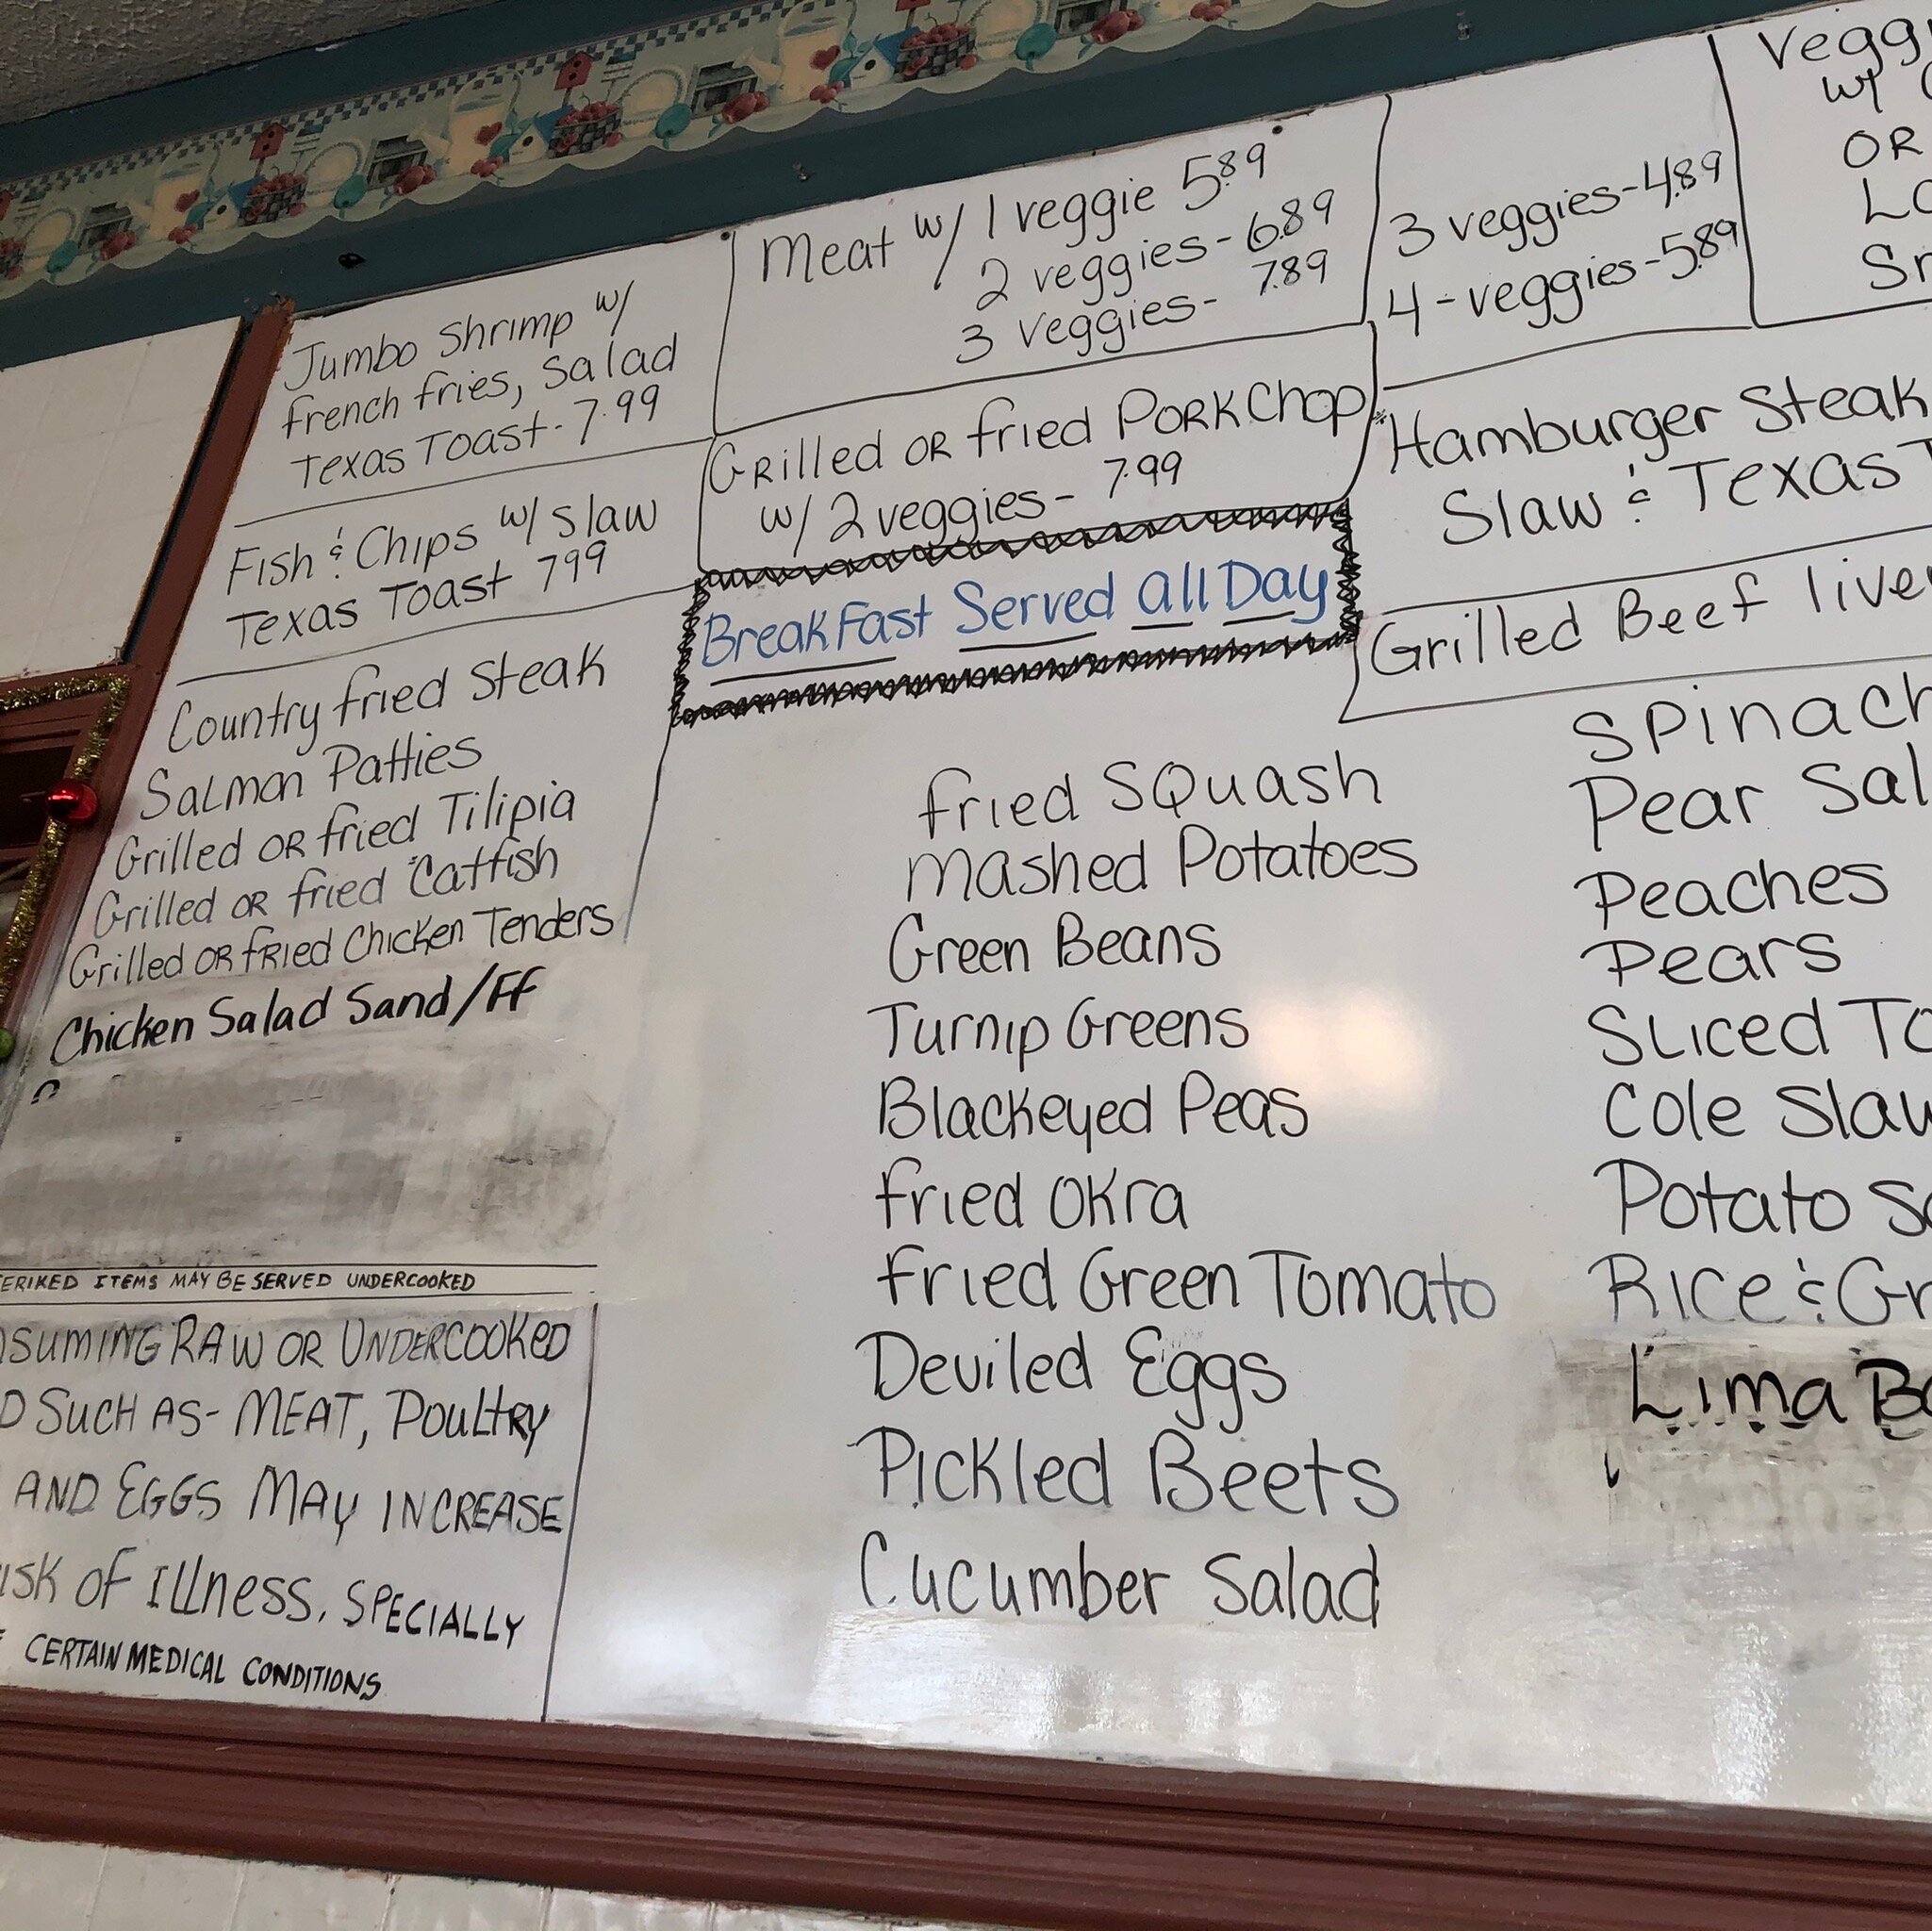 Jumbo Shrimp w/
French fries, Salad
Texas Toast - 7.99
Fish & Chips w/ slaw
Texas Toast 7.99
Country fried Steak
Salmon Patties
Grilled or fried Tilipia
Grilled or fried Catfish
Grilled or fried Chicken Tenders
Chicken Salad Sand/FF
ERIKED ITEMS MAY BE SERVED UNDERCOOKED
SUMING RAW OR UNDERCOOKED
D SUCH AS- MEAT, POULTRY
AND EGGS MAY INCREASE
ISK OF ILLNESS, SPECIALLY
CERTAIN MEDICAL CONDITIONS
Meat w/ 1 veggie 5.89
2 veggies - 6.89
3 veggies - 7.89
Grilled or fried Pork Chop
w/ 2 veggies - 7.99
Breakfast Served all Day
fried Squash
mashed Potatoes
Green Beans
Turnip Greens
Blackeyed Peas
fried Okra
fried Green Tomato
Deviled Eggs
Pickled Beets
Cucumber Salad
3 veggies - 4.89
4 - veggies - 5.89
Vegg
w/
OR
Lo
Sm
*Hamburger Steak
Slaw & Texas T
Grilled Beef live
Spinach
Pear Sal
Peaches
Pears
Sliced To
Cole Slaw
Potato Sa
Rice & Gr
Lima Be